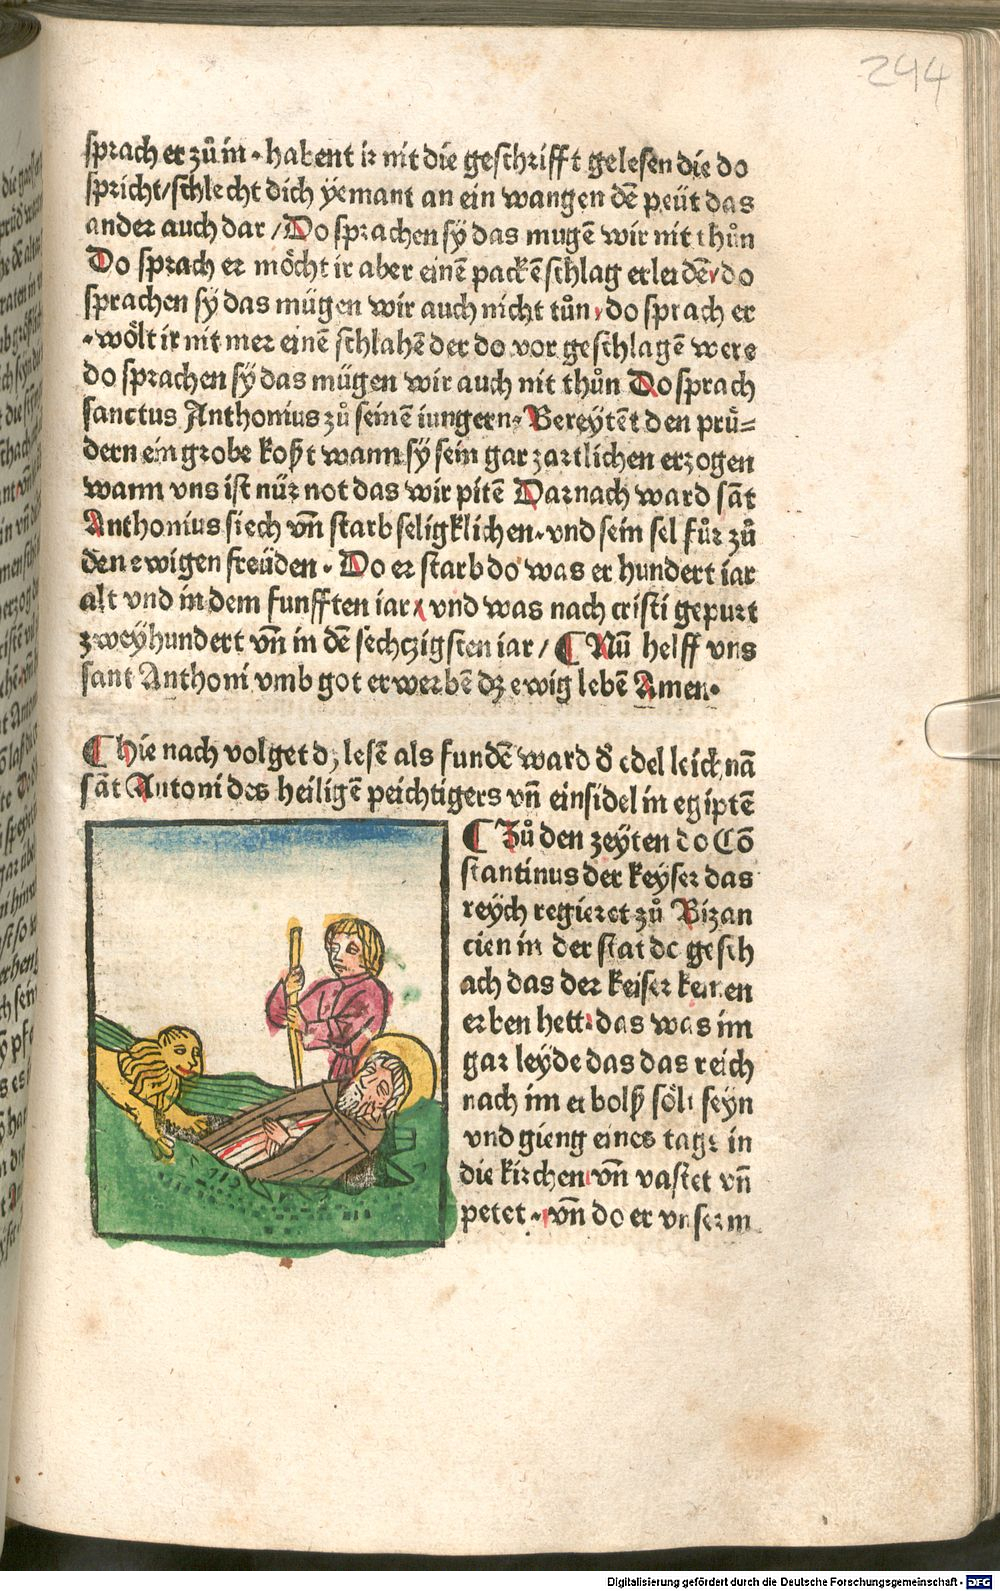 294
sprach er zů in · habent ir nit die geschrifft gelesen die do
spricht/schlecht dich yemant an ein wangen dē peüt das
ander auch dar /Do sprachen sÿ das mugē wir nit thůn
Do sprach er möcht ir aber einē packēschlag erleidē, do
sprachen sÿ das mügen wir auch nicht tůn, do sprach er
·wölt ir nit mer einē schlahē der do vor geschlagē were
do sprachen sÿ das mügen wir auch nit thůn Do sprach
sanctus Anthonius zů seinē iungern, Bereytēt den prü=
dern ein grobe koßt wann sÿ sein gar zartlichen erzogen
wann vns ist nür not das wir pitē Darnach ward sāt
Anthonius siech vn̄ starb seligklichen, vnd sein sel fůr zů
den ewigen freüden · Do er starb do was er hundert iar
alt vnd in dem funfften iar, vnd was nach cristi gepurt
zweyhundert vn̄ in dē sechczigsten iar / ¶ Nū helff vns
sant Anthoni vmb got erwerbē dz ewig lebē Amen·
¶ hie nach volget dz lesē als fundē ward d̄ edel leichnā
sāt Antoni des heiligē peichtigers vn̄ einsidel in egiptē
¶ Zů den zeyten do Cō
stantinus der keyser das
reych regieret zů Bizan
cien in der stat do gesch
ach das der keiser keinen
erben hett, das was im
gar leyde das das reich
nach im erbolß sölt seyn
vnd gieng eines tags in
die kirchen vn̄ vastet vn̄
petet · vn̄ do er vnserm
Digitalisierung gefördert durch die Deutsche Forschungsgemeinschaft - DFG